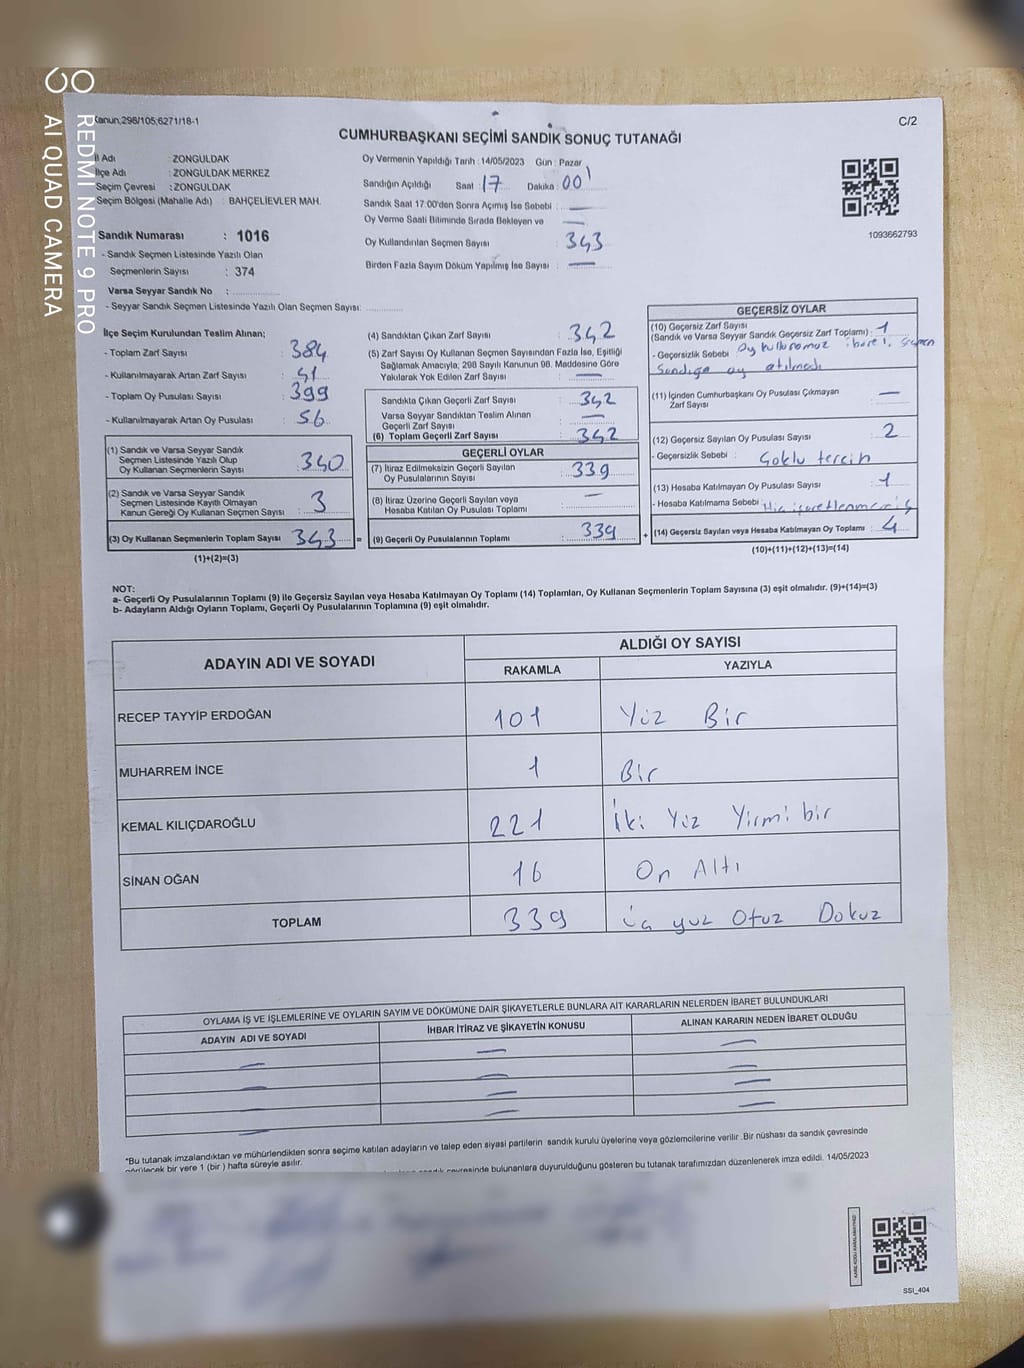 REDMI NOTE 9 PRO
AI QUAD CAMERA
Kanun;298/105;6271/18-1
C/2
CUMHURBAŞKANI SEÇİMİ SANDIK SONUÇ TUTANAĞI
İl Adı : ZONGULDAK
İlçe Adı : ZONGULDAK MERKEZ
Seçim Çevresi : ZONGULDAK
Seçim Bölgesi (Mahalle Adı) : BAHÇELİEVLER MAH.
Sandık Numarası : 1016
- Sandık Seçmen Listesinde Yazılı Olan
Seçmenlerin Sayısı : 374
Varsa Seyyar Sandık No :
- Seyyar Sandık Seçmen Listesinde Yazılı Olan Seçmen Sayısı:
Oy Vermenin Yapıldığı Tarih : 14/05/2023 Gün : Pazar
Sandığın Açıldığı Saat : 17 Dakika : 00
Sandık Saat 17:00'den Sonra Açımış İse Sebebi : —
Oy Verme Saati Bitiminde Sırada Bekleyen ve —
Oy Kullandırılan Seçmen Sayısı : 343
Birden Fazla Sayım Döküm Yapılmış İse Sayısı : —
1093662793
İlçe Seçim Kurulundan Teslim Alınan;
- Toplam Zarf Sayısı : 384
- Kullanılmayarak Artan Zarf Sayısı : 41
- Toplam Oy Pusulası Sayısı : 399
- Kullanılmayarak Artan Oy Pusulası : 56
(1) Sandık ve Varsa Seyyar Sandık
Seçmen Listesinde Yazılı Olup
Oy Kullanan Seçmenlerin Sayısı : 340
(2) Sandık ve Varsa Seyyar Sandık
Seçmen Listesinde Kayıtlı Olmayan
Kanun Gereği Oy Kullanan Seçmen Sayısı : 3
(3) Oy Kullanan Seçmenlerin Toplam Sayısı 343 =
(1)+(2)=(3)
(4) Sandıktan Çıkan Zarf Sayısı : 342
(5) Zarf Sayısı Oy Kullanan Seçmen Sayısından Fazla İse, Eşitliği
Sağlamak Amacıyla; 298 Sayılı Kanunun 98. Maddesine Göre
Yakılarak Yok Edilen Zarf Sayısı : —
Sandıkta Çıkan Geçerli Zarf Sayısı : 342
Varsa Seyyar Sandıktan Teslim Alınan
Geçerli Zarf Sayısı : —
(6) Toplam Geçerli Zarf Sayısı : 342
GEÇERLİ OYLAR
(7) İtiraz Edilmeksizin Geçerli Sayılan
Oy Pusulalarının Sayısı : 339
(8) İtiraz Üzerine Geçerli Sayılan veya
Hesaba Katılan Oy Pusulası Toplamı : —
(9) Geçerli Oy Pusulalarının Toplamı : 339 +
GEÇERSİZ OYLAR
(10) Geçersiz Zarf Sayısı
(Sandık ve Varsa Seyyar Sandık Geçersiz Zarf Toplamı) : 1
- Geçersizlik Sebebi :
Sandığa oy atılmadı
(11) İçinden Cumhurbaşkanı Oy Pusulası Çıkmayan
Zarf Sayısı : —
(12) Geçersiz Sayılan Oy Pusulası Sayısı : 2
- Geçersizlik Sebebi : Çoklu tercih
(13) Hesaba Katılmayan Oy Pusulası Sayısı : 1
- Hesaba Katılmama Sebebi : Hiç işaretlenmemiş
(14) Geçersiz Sayılan veya Hesaba Katılmayan Oy Toplamı : 4
(10)+(11)+(12)+(13)=(14)
NOT:
a- Geçerli Oy Pusulalarının Toplamı (9) ile Geçersiz Sayılan veya Hesaba Katılmayan Oy Toplamı (14) Toplamları, Oy Kullanan Seçmenlerin Toplam Sayısına (3) eşit olmalıdır. (9)+(14)=(3)
b- Adayların Aldığı Oyların Toplamı, Geçerli Oy Pusulalarının Toplamına (9) eşit olmalıdır.
ADAYIN ADI VE SOYADI
ALDIĞI OY SAYISI
RAKAMLA YAZIYLA
RECEP TAYYİP ERDOĞAN 101 Yüz Bir
MUHARREM İNCE 1 Bir
KEMAL KILIÇDAROĞLU 221 İki Yüz Yirmi bir
SİNAN OĞAN 16 On Altı
TOPLAM 339 üç yüz Otuz Dokuz
OYLAMA İŞ VE İŞLEMLERİNE VE OYLARIN SAYIM VE DÖKÜMÜNE DAİR ŞİKAYETLERLE BUNLARA AİT KARARLARIN NELERDEN İBARET BULUNDUKLARI
ADAYIN ADI VE SOYADI İHBAR İTİRAZ VE ŞİKAYETİN KONUSU ALINAN KARARIN NEDEN İBARET OLDUĞU
*Bu tutanak imzalandıktan ve mühürlendikten sonra seçime katılan adayların ve talep eden siyasi partilerin sandık kurulu üyelerine veya gözlemcilerine verilir .Bir nüshası da sandık çevresinde
görülecek bir yere 1 (bir ) hafta süreyle asılır.
sandık çevresinde bulunanlara duyurulduğunu gösteren bu tutanak tarafımızdan düzenlenerek imza edildi. 14/05/2023
SSI_404